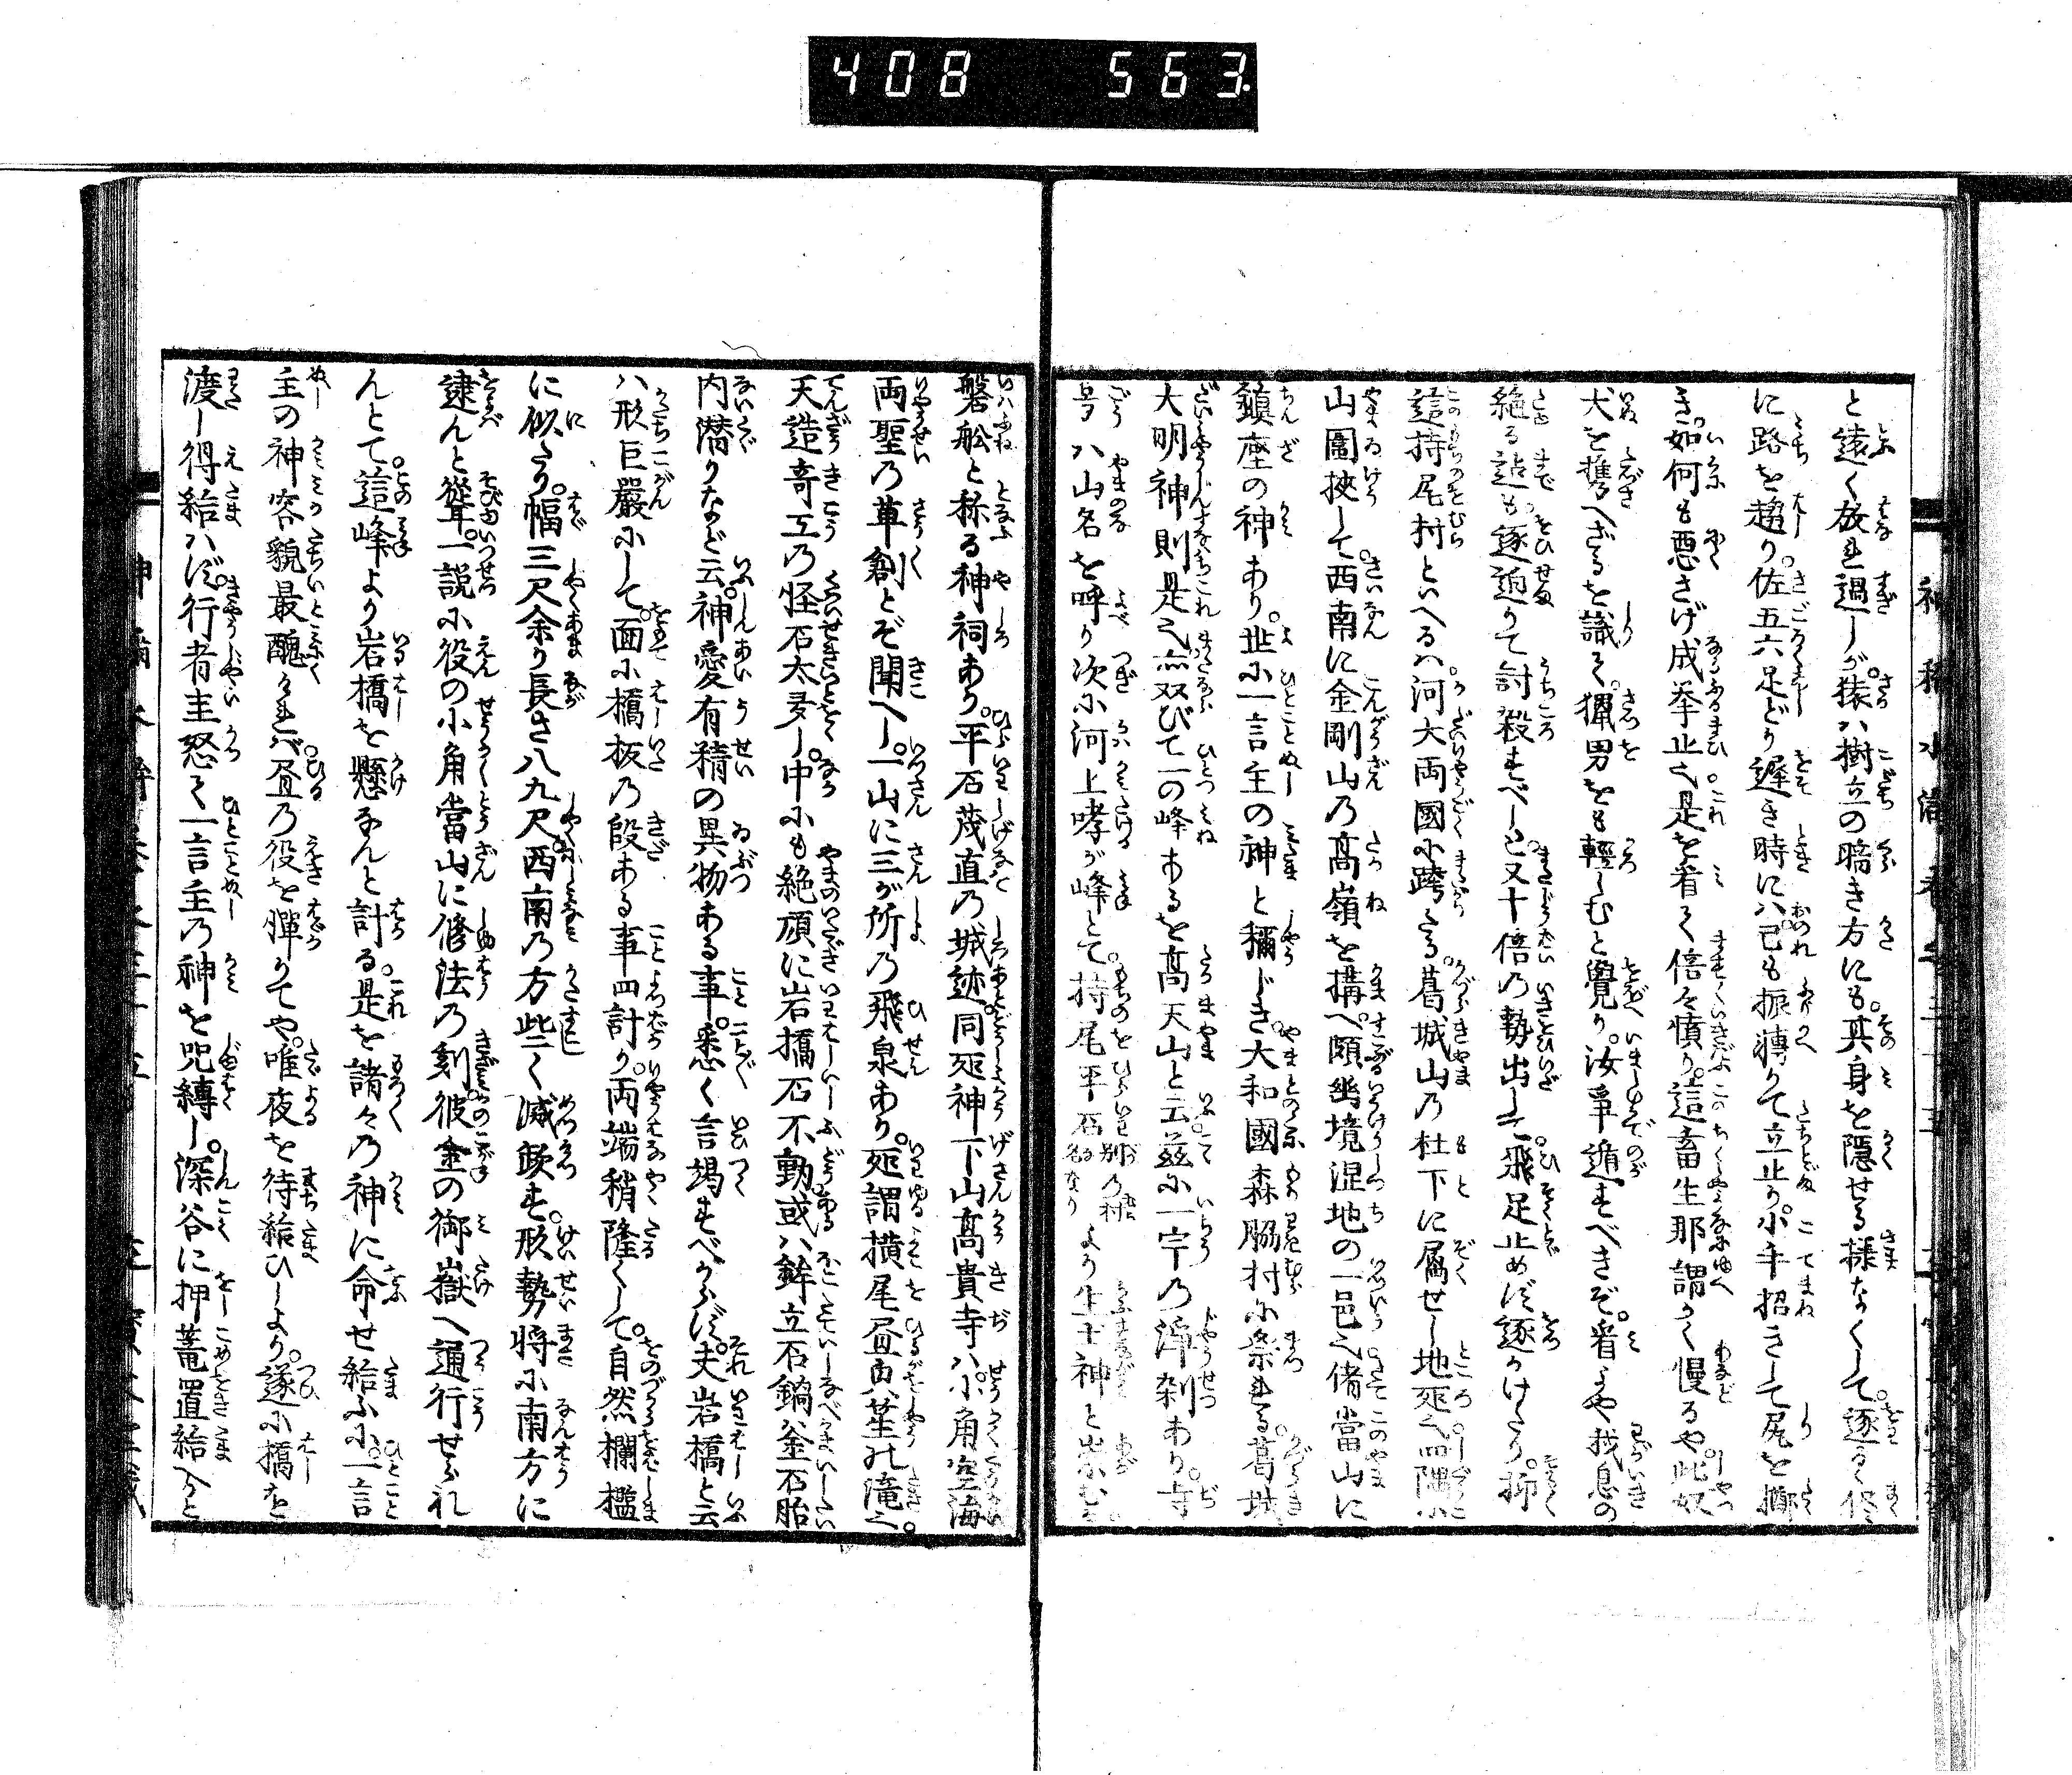 408 563
と遠く放れ過しが。猿ハ樹立の暗き方にも。其身を隠せる様なくして。逐るゝ侭
に路を趨り。佐五六足どり遅き時にハ。己も振漙りて立止り。小手招きして尻を擲
き。如何も悪さげ成挙止也。是を看て倍々憤り。這畜生那謂かく慢るや。此奴
犬を携へざるを識て。猟男をも軽しむと覚り。汝争遁すべきぞ。看よや我息の
絶る迄も。逐迫りて討殺すべしと。又十倍の勢出して。飛足止めず逐かけたり。抑
這持尾村といへるハ。河大両國に跨たる。葛城山の杜下に属せし地所也。四隅に
山圍挾して。西南に金剛山の高嶺を搆へ。頗幽境湿地の一邑也。偖當山に
鎮座の神あり。世に一言主の神と稱じき。大和國森脇村に祭れる。葛城
大明神則是也。亦双びて一の峰あるを高天山と云。茲に一宇の浄刹あり。寺
号ハ山名を呼り。次に河上哮が峰とて。持尾平石別の村名なりより生土神と崇む
磐舩と称る神祠あり。平石茂直の城跡。同所神下山高貴寺ハ。小角空海
両聖の草創とぞ聞へし。一山に三が所の飛泉あり。所謂横尾昼由笙の滝也。
天造奇工の怪石太多し。中にも絶頂に岩橋石不動。或ハ鉾立石鍋釜石胎
内潜りなど云。神愛有精の異物ある事。悉く言竭すべからず。夫岩橋と云
ハ形巨嚴にして。面に橋板の段ある事四計り。両端稍隆くして。自然欄檻
に似たり。幅三尺余り長さ八九尺。西南の方些く減缺す。形勢将に南方に
逮んと聳。一説に役の小角當山に修法の刻。彼金の御嶽へ通行せられ
んとて。這峰より岩橋を懸なんと計る。是を諸々の神に命せ給ふに。一言
主の神容貌最醜ければ。昼の役を憚りてや。唯夜を待給ひしより。遂に橋を
渡し得給ハず。行者主怒て一言主の神を咒縛し。深谷に押篭置給へりと